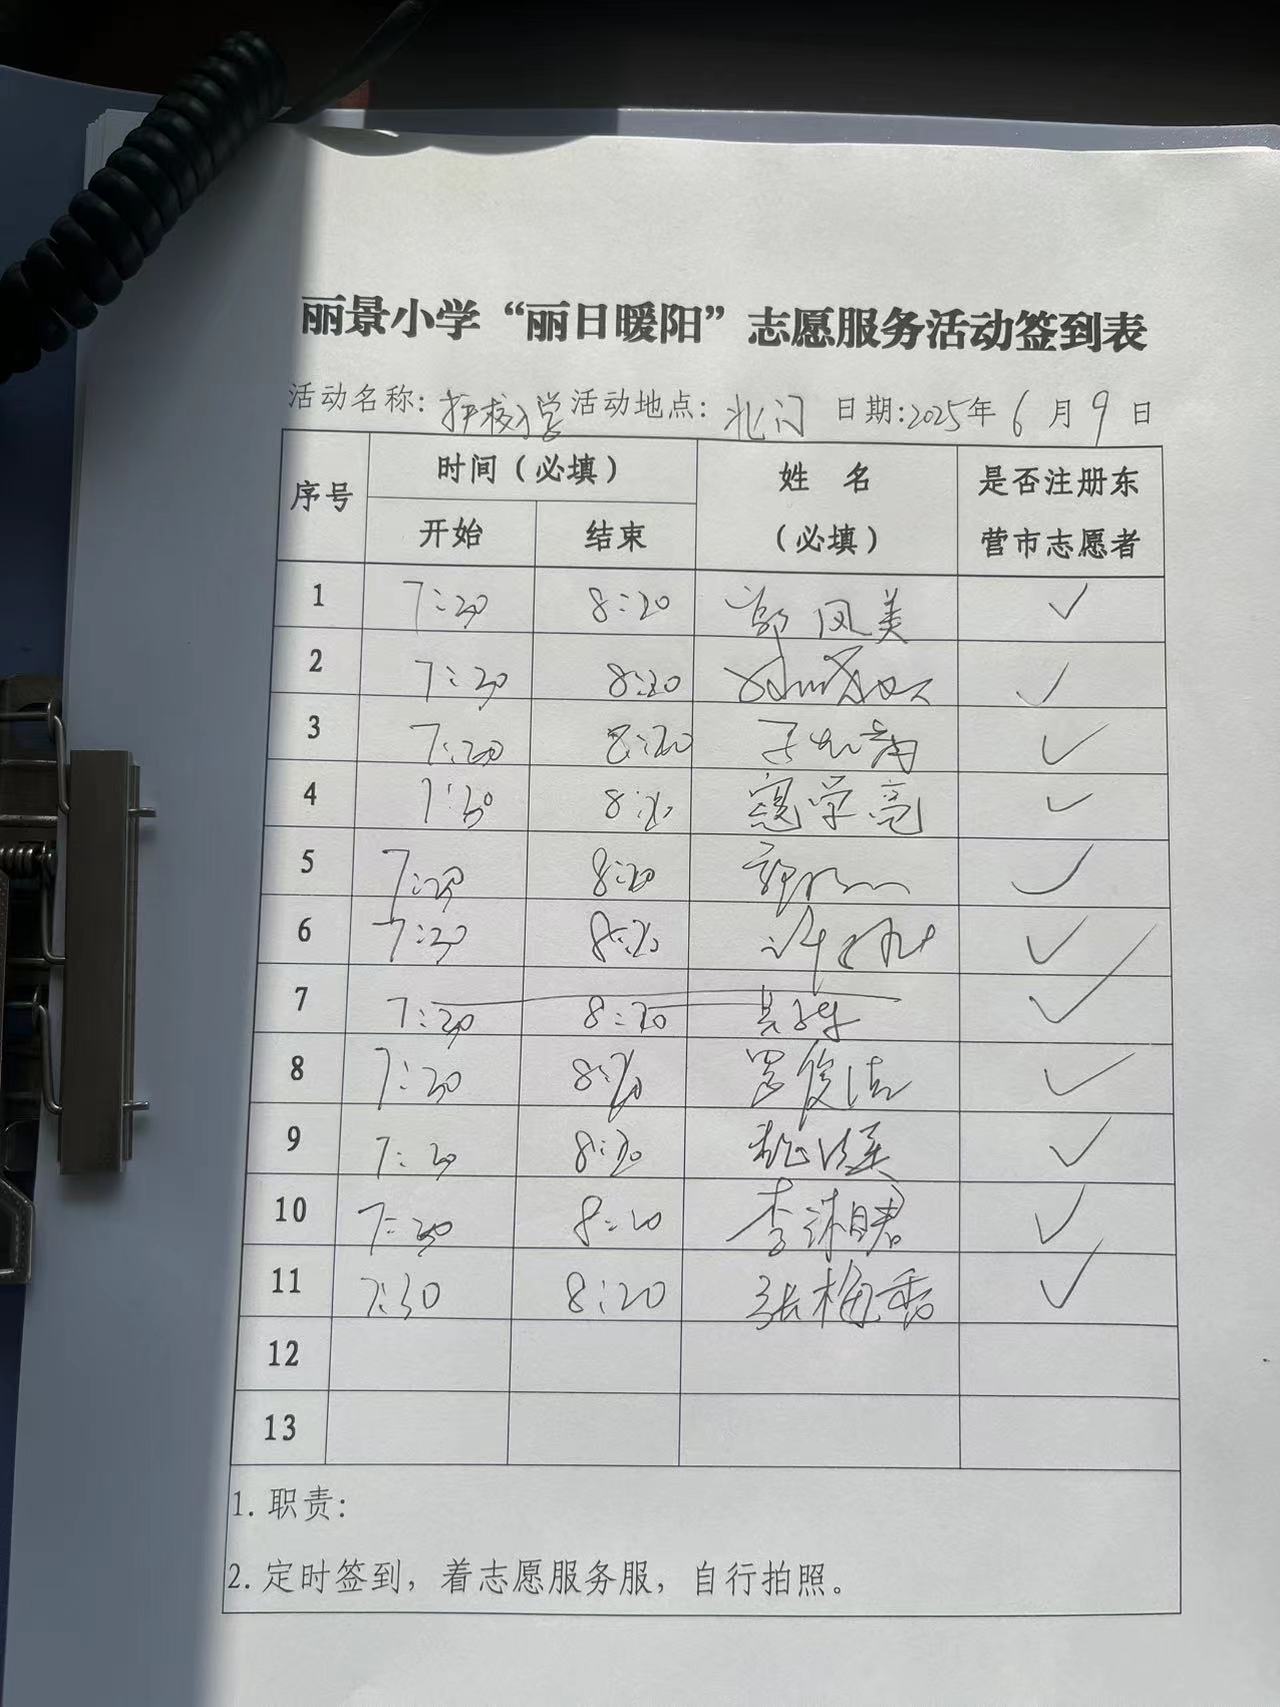 丽景小学“丽日暖阳”志愿服务活动签到表
活动名称:护校行 活动地点:北门 日期:2025年6月9日
序号 时间(必填) 姓 名 是否注册东
开始 结束 (必填) 营市志愿者
1 7:30 8:20 郭凤美 ✓
2 7:30 8:20 ✓
3 7:30 8:20 ✓
4 7:30 8:20 寇学亮 ✓
5 7:20 8:20 ✓
6 7:30 8:20 ✓
7 7:30 8:20 ✓
8 7:30 8:20 ✓
9 7:30 8:20 ✓
10 7:30 8:20 ✓
11 7:30 8:20 张梅香 ✓
12
13
1. 职责:
2. 定时签到,着志愿服务服,自行拍照。